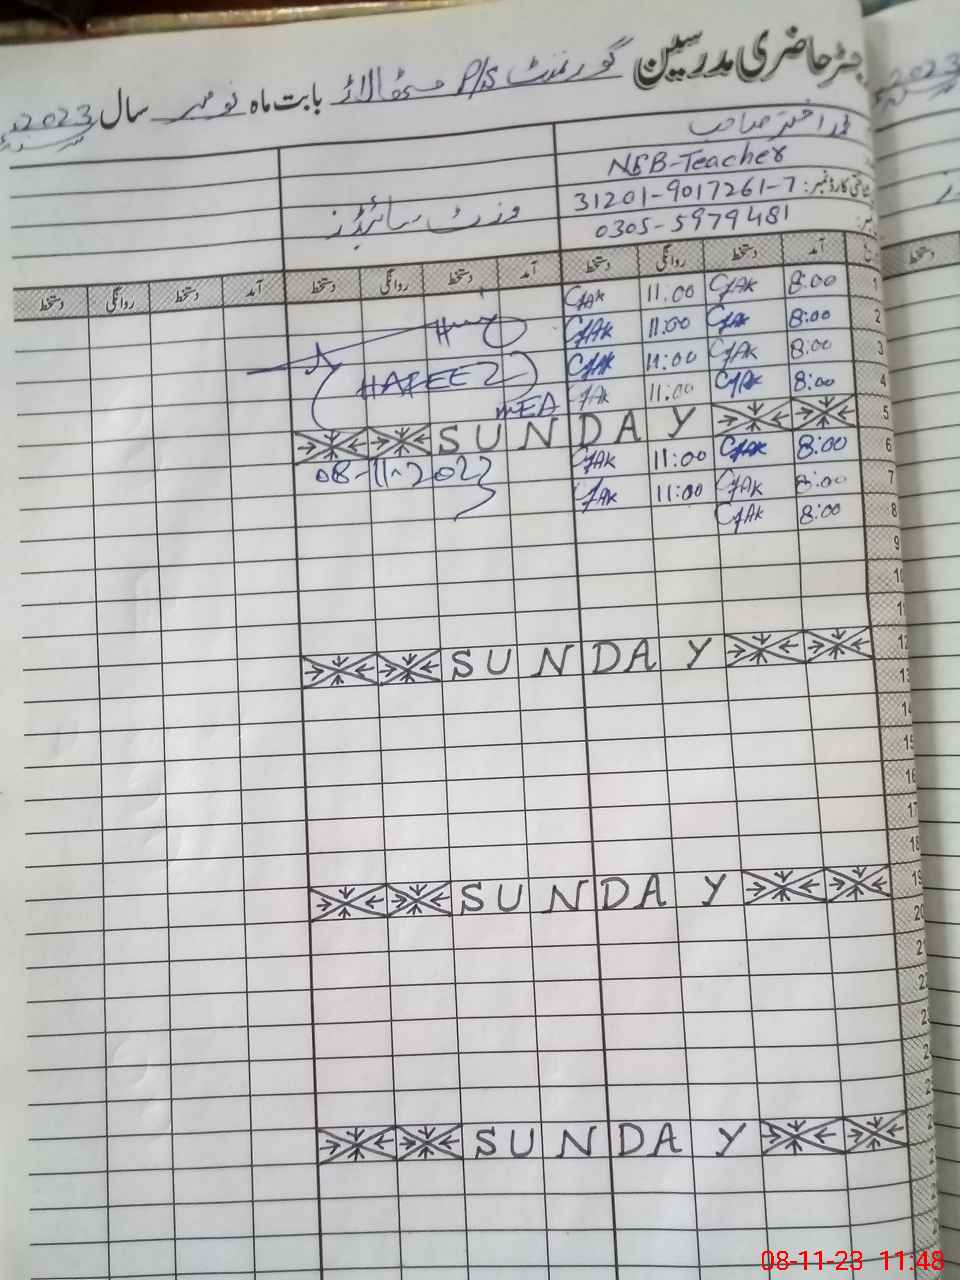 رجسٹر حاضری مدرسین گورنمنٹ P/S بابت ماہ نومبر سال 2023ء
اختر صاحب
NSB-Teacher
شناختی کارڈ نمبر: 31201-9017261-7
0305-5979481
وزٹ سائیڈز
آمد دستخط روانگی دستخط آمد دستخط روانگی دستخط آمد دستخط روانگی دستخط
1 8:00 GAK 11:00 GAK
2 8:00 GAK 11:00 GAK
3 8:00 GAK 11:00 GAK
4 8:00 GAK 11:00 GAK
HAFEEZ
MEA
5 SUNDAY
6 8:00 GAK 11:00 GAK
08-11-2023
7 8:00 GAK 11:00 GAK
8 8:00 GAK
9
10
11
12 SUNDAY
13
14
15
16
17
18
19 SUNDAY
20
21
SUNDAY
2023
08-11-23 11:48